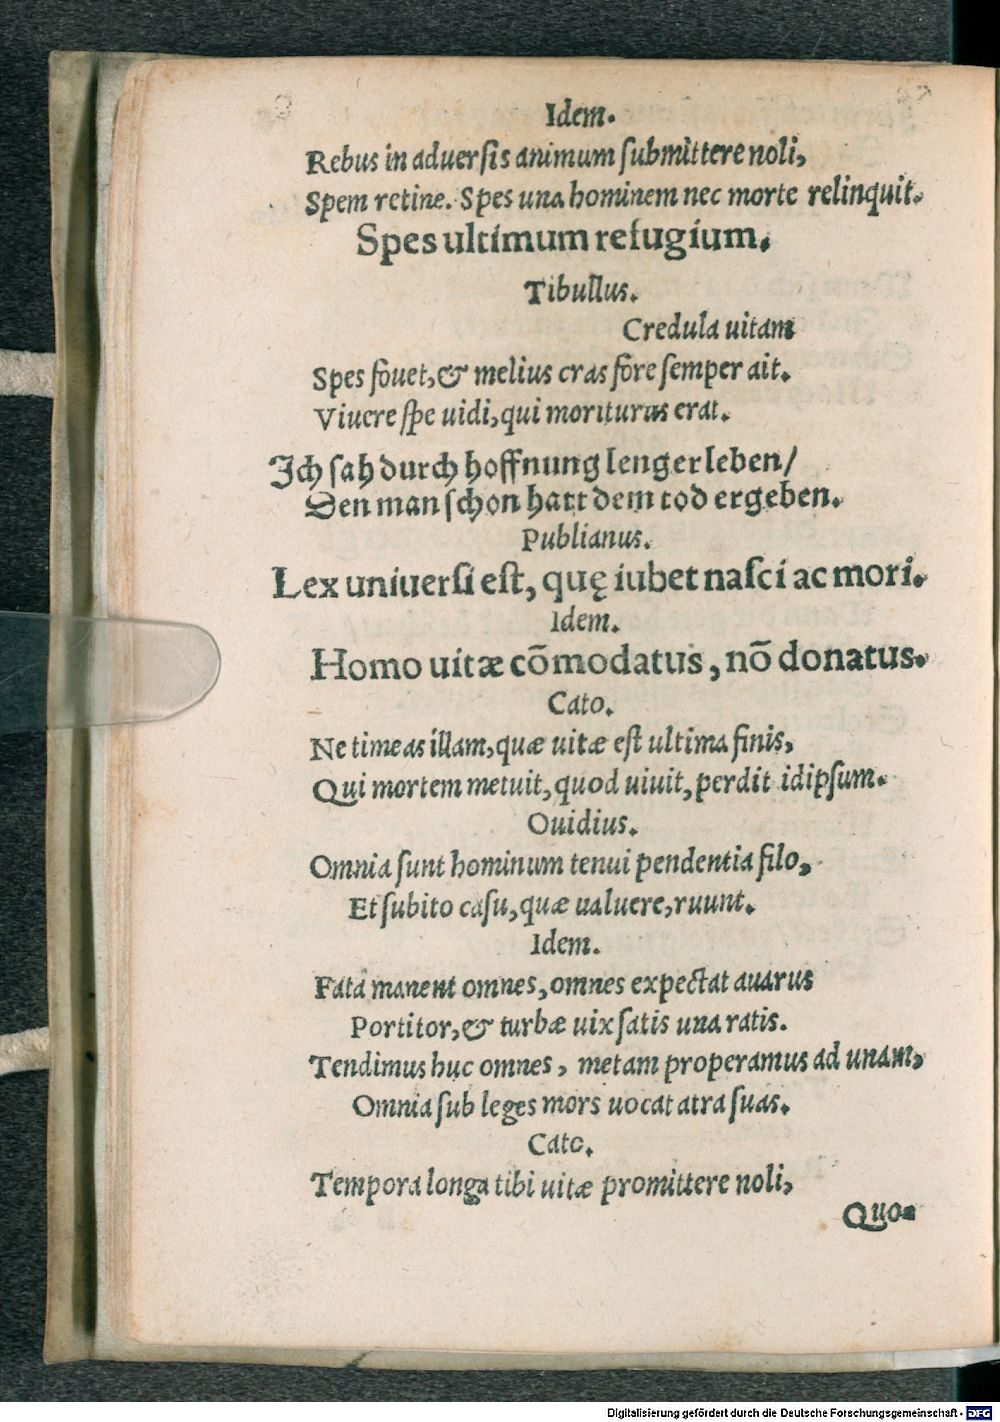 Idem.
Rebus in aduersis animum submittere noli,
Spem retine. Spes una hominem nec morte relinquit.
Spes ultimum refugium.
Tibullus.
Credula uitam
Spes fouet, & melius cras fore semper ait.
Viuere spe uidi, qui moriturus erat.
Ich sah durch hoffnung lenger leben/
Den man schon hatt dem tod ergeben.
Publianus.
Lex uniuersi est, quę iubet nasci ac mori.
Idem.
Homo uitæ cōmodatus, nō donatus.
Cato.
Ne timeas illam, quæ uitæ est ultima finis,
Qui mortem metuit, quod uiuit, perdit idipsum.
Ouidius.
Omnia sunt hominum tenui pendentia filo,
Et subito casu, quæ ualuere, ruunt.
Idem.
Fata manent omnes, omnes expectat auarus
Portitor, & turbæ uix satis una ratis.
Tendimus huc omnes, metam properamus ad unam,
Omnia sub leges mors uocat atra suas.
Cato.
Tempora longa tibi uitæ promittere noli,
Quo-
Digitalisierung gefördert durch die Deutsche Forschungsgemeinschaft - DFG